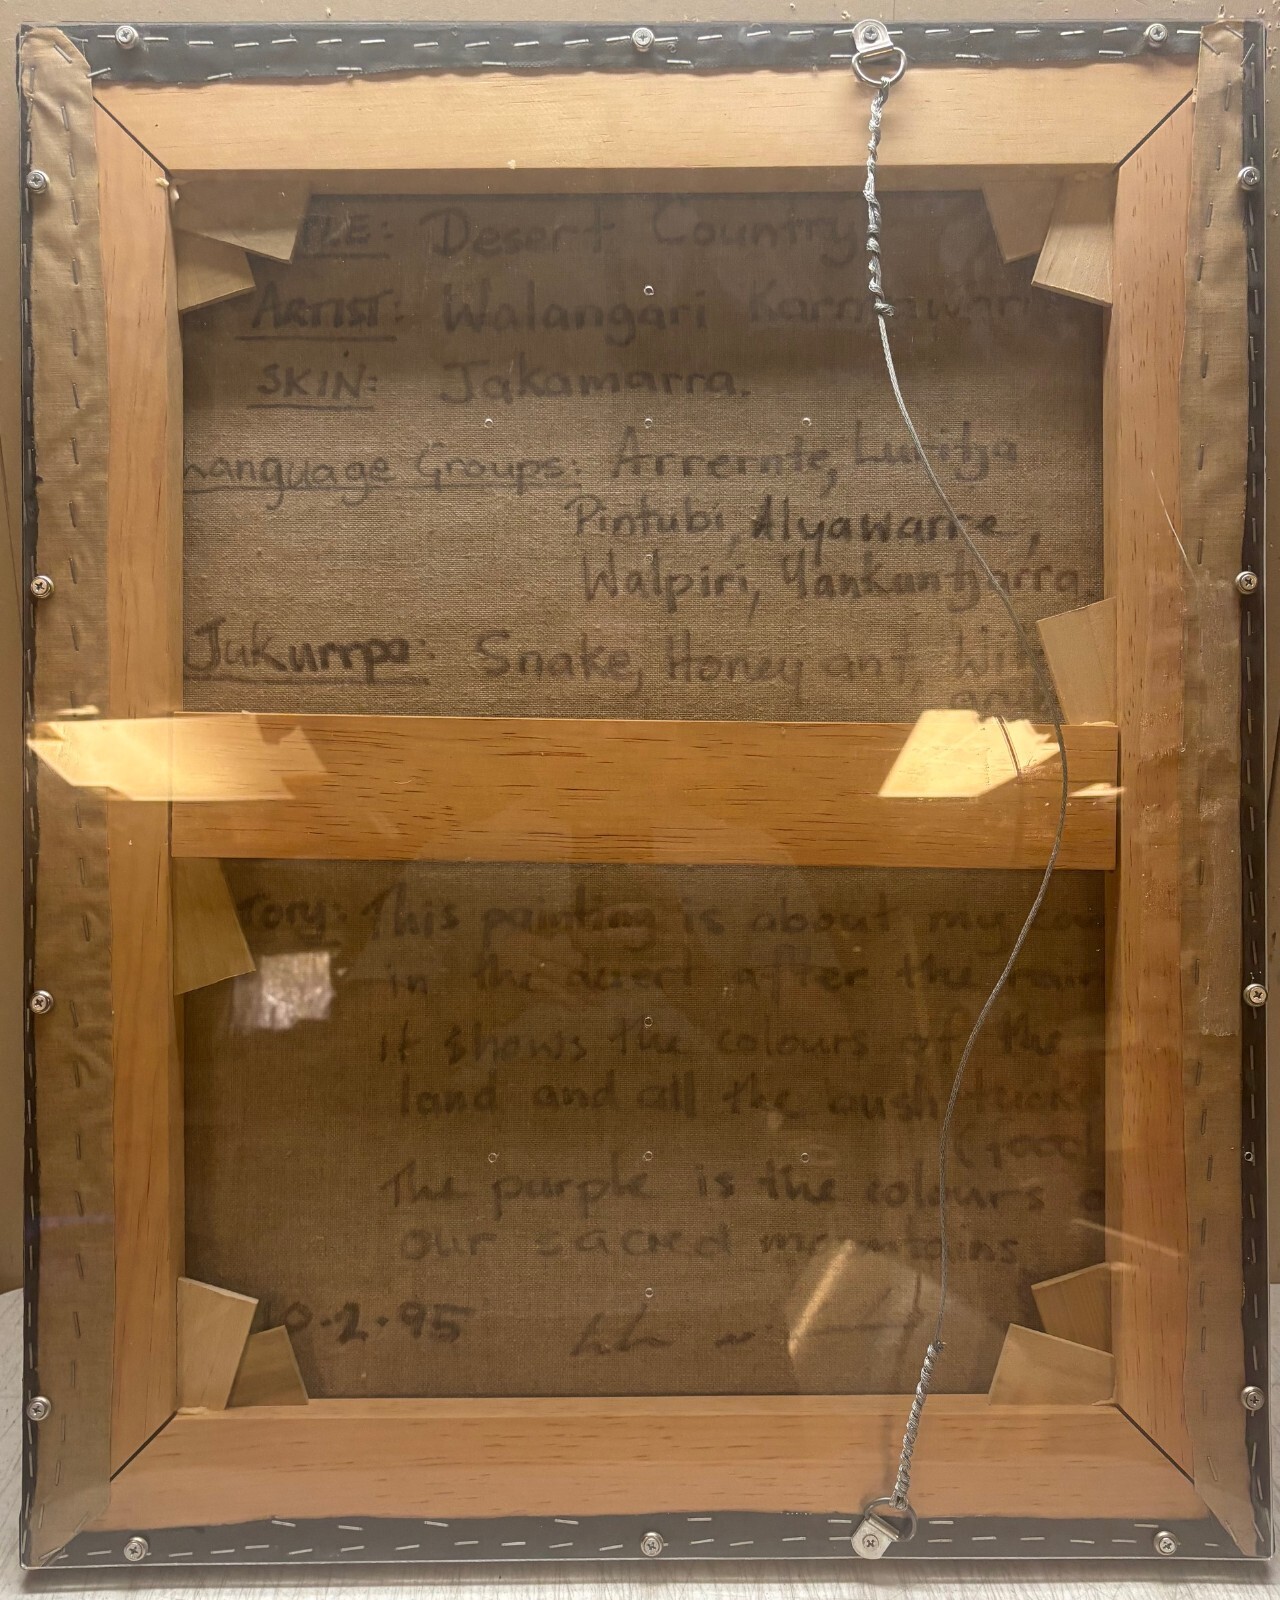 TLE: Desert Country
ARTIST: Walangari
SKIN: Jakamarra.
Language Groups: Arrernte, Luritja
Pintubi, Alyawarre,
Walpiri, Yankuntjarra
Jukurrpa: Snake, Honey ant, Wit
tory: This painting is about my
in the desert after the rain
it shows the colours of the
land and all the bush tuck
(food
The purple is the colours o
our sacred mountains
0.2.95